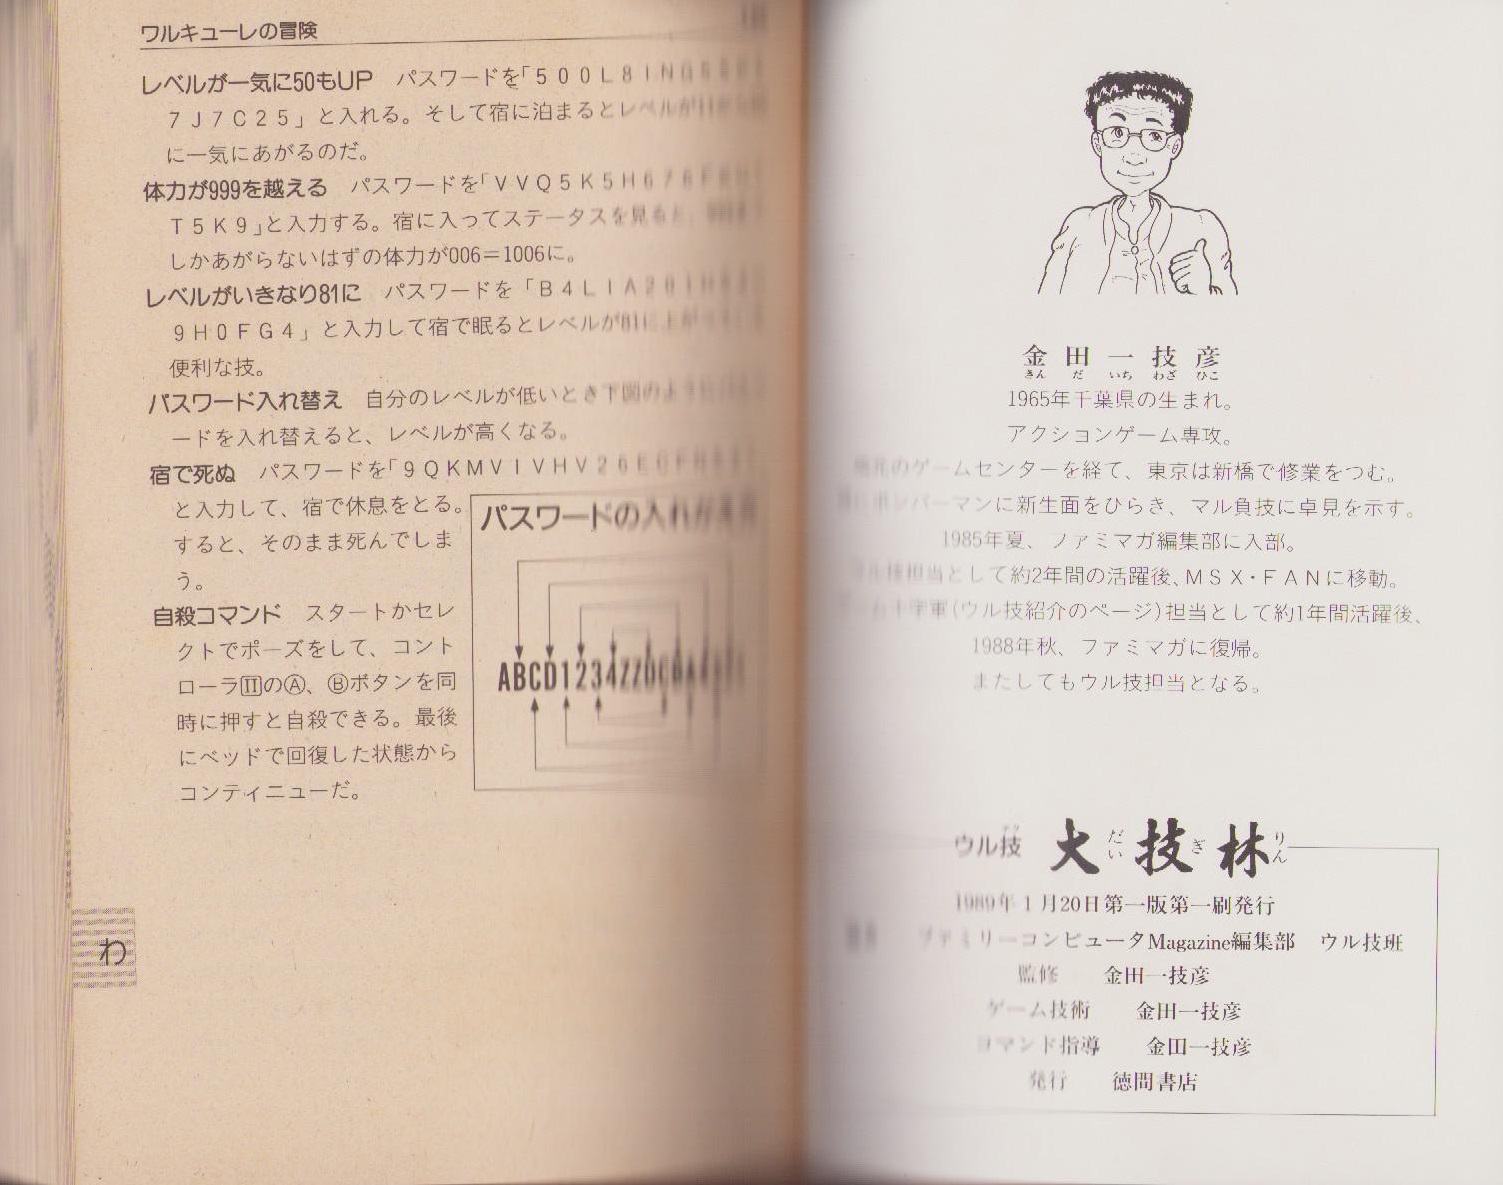 ワルキューレの冒険
レベルが一気に50もUP　パスワードを「500L8ING
7J7C25」と入れる。そして宿に泊まるとレベルが
に一気にあがるのだ。
体力が999を越える　パスワードを「VVQ5K5H676
T5K9」と入力する。宿に入ってステータスを見ると、
しかあがらないはずの体力が006＝1006に。
レベルがいきなり81に　パスワードを「B4LIA
9H0FG4」と入力して宿で眠るとレベルが81に上が
便利な技。
パスワード入れ替え　自分のレベルが低いとき下図のように
ードを入れ替えると、レベルが高くなる。
宿で死ぬ　パスワードを「9QKMVIVHV26E
と入力して、宿で休息をとる。
すると、そのまま死んでしま
う。
自殺コマンド　スタートかセレ
クトでポーズをして、コント
ローラⅡのⒶ、Ⓑボタンを同
時に押すと自殺できる。最後
にベッドで回復した状態から
コンティニューだ。
パスワードの入れかえ
ABCD1234ZZ
わ
金田一技彦
きん だ いち わざ ひこ
1965年千葉県の生まれ。
アクションゲーム専攻。
のゲームセンターを経て、東京は新橋で修業をつむ。
ボンバーマンに新生面をひらき、マル負技に卓見を示す。
1985年夏、ファミマガ編集部に入部。
担当として約2年間の活躍後、MSX・FANに移動。
十字軍(ウル技紹介のページ)担当として約1年間活躍後、
1988年秋、ファミマガに復帰。
またしてもウル技担当となる。
ウル技 大技林
だい ぎ りん
1989年1月20日第一版第一刷発行
ファミリーコンピュータMagazine編集部　ウル技班
監修　金田一技彦
ゲーム技術　金田一技彦
コマンド指導　金田一技彦
発行　徳間書店